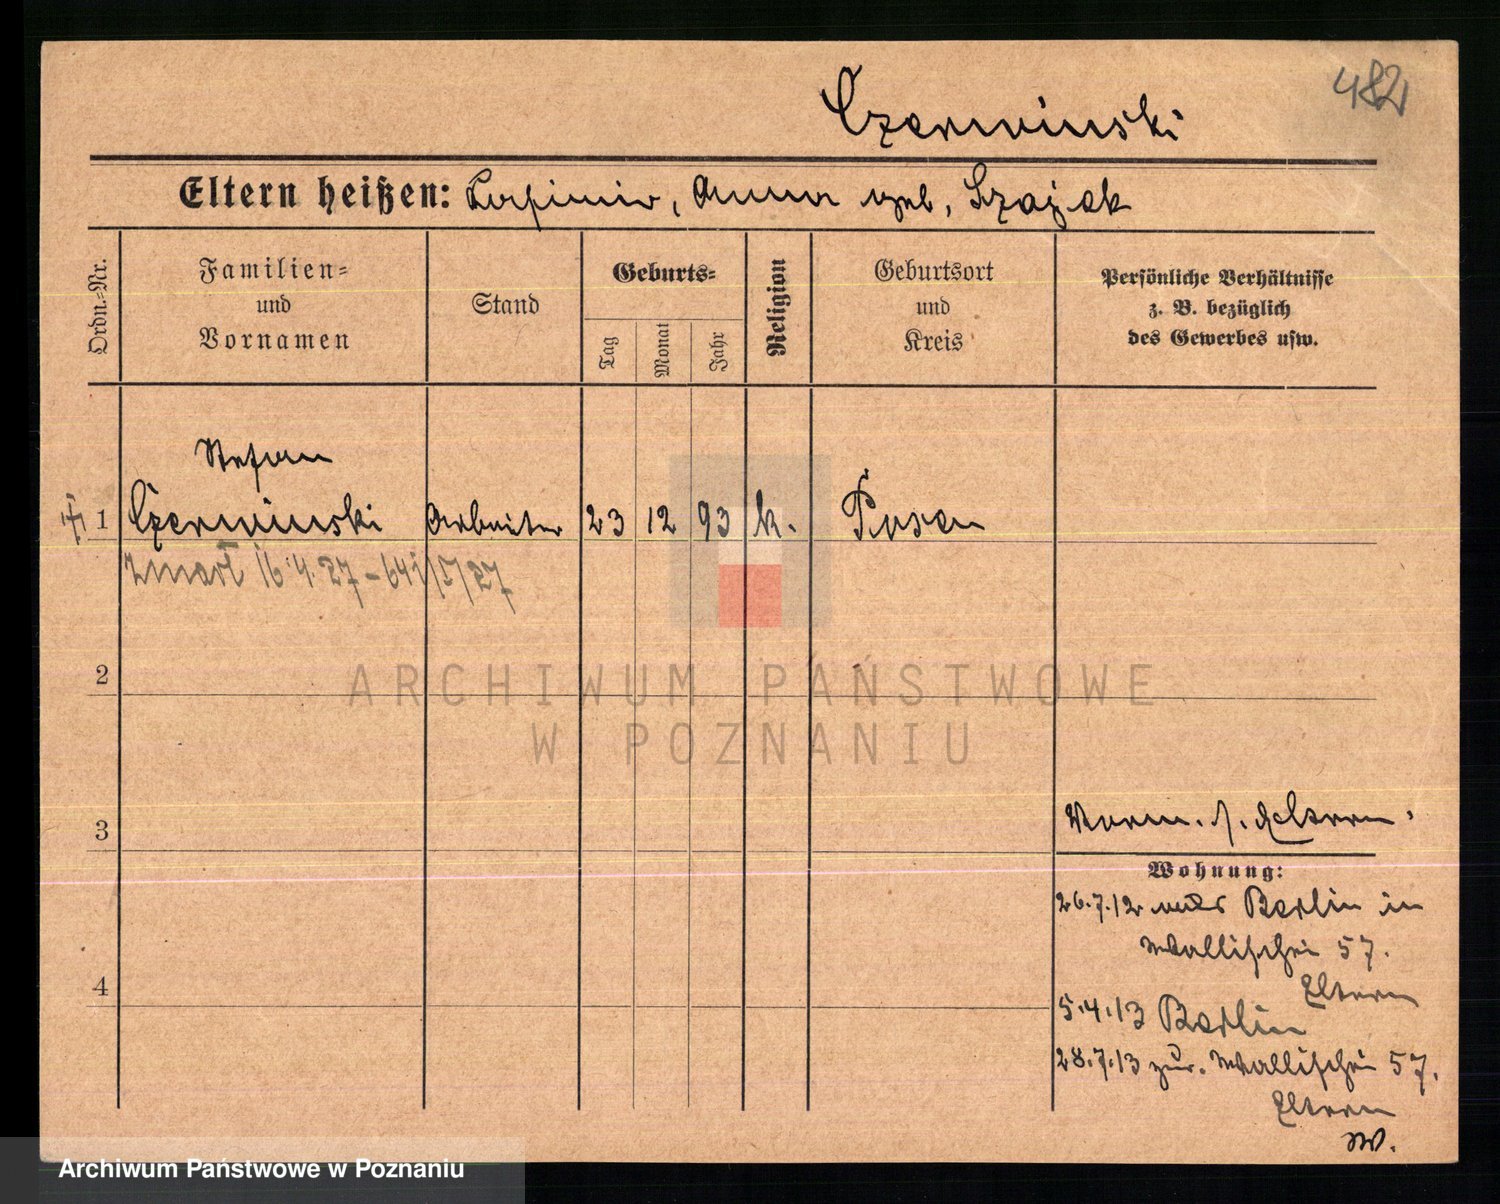 482
Czerwinski
Eltern heißen: Kasimir, Anna geb. Szajek
Ordn.-Nr.
Familien-
und
Vornamen
Stand
Geburts-
Tag
Monat
Jahr
Religion
Geburtsort
und
Kreis
Persönliche Verhältnisse
z. B. bezüglich
des Gewerbes usw.
Stefan
1 Czerwinski Arbeiter 23 12 93 k. Posen
zmarł 16.4.27 - 641/V/27
2
3
4
Vorm. s. Eltern.
Wohnung:
26.7.12 Berlin in
Wallischei 57.
Eltern
5.4.13 Berlin
28.7.13 zur. Wallischei 57.
Eltern
W.
ARCHIWUM PAŃSTWOWE
W POZNANIU
Archiwum Państwowe w Poznaniu